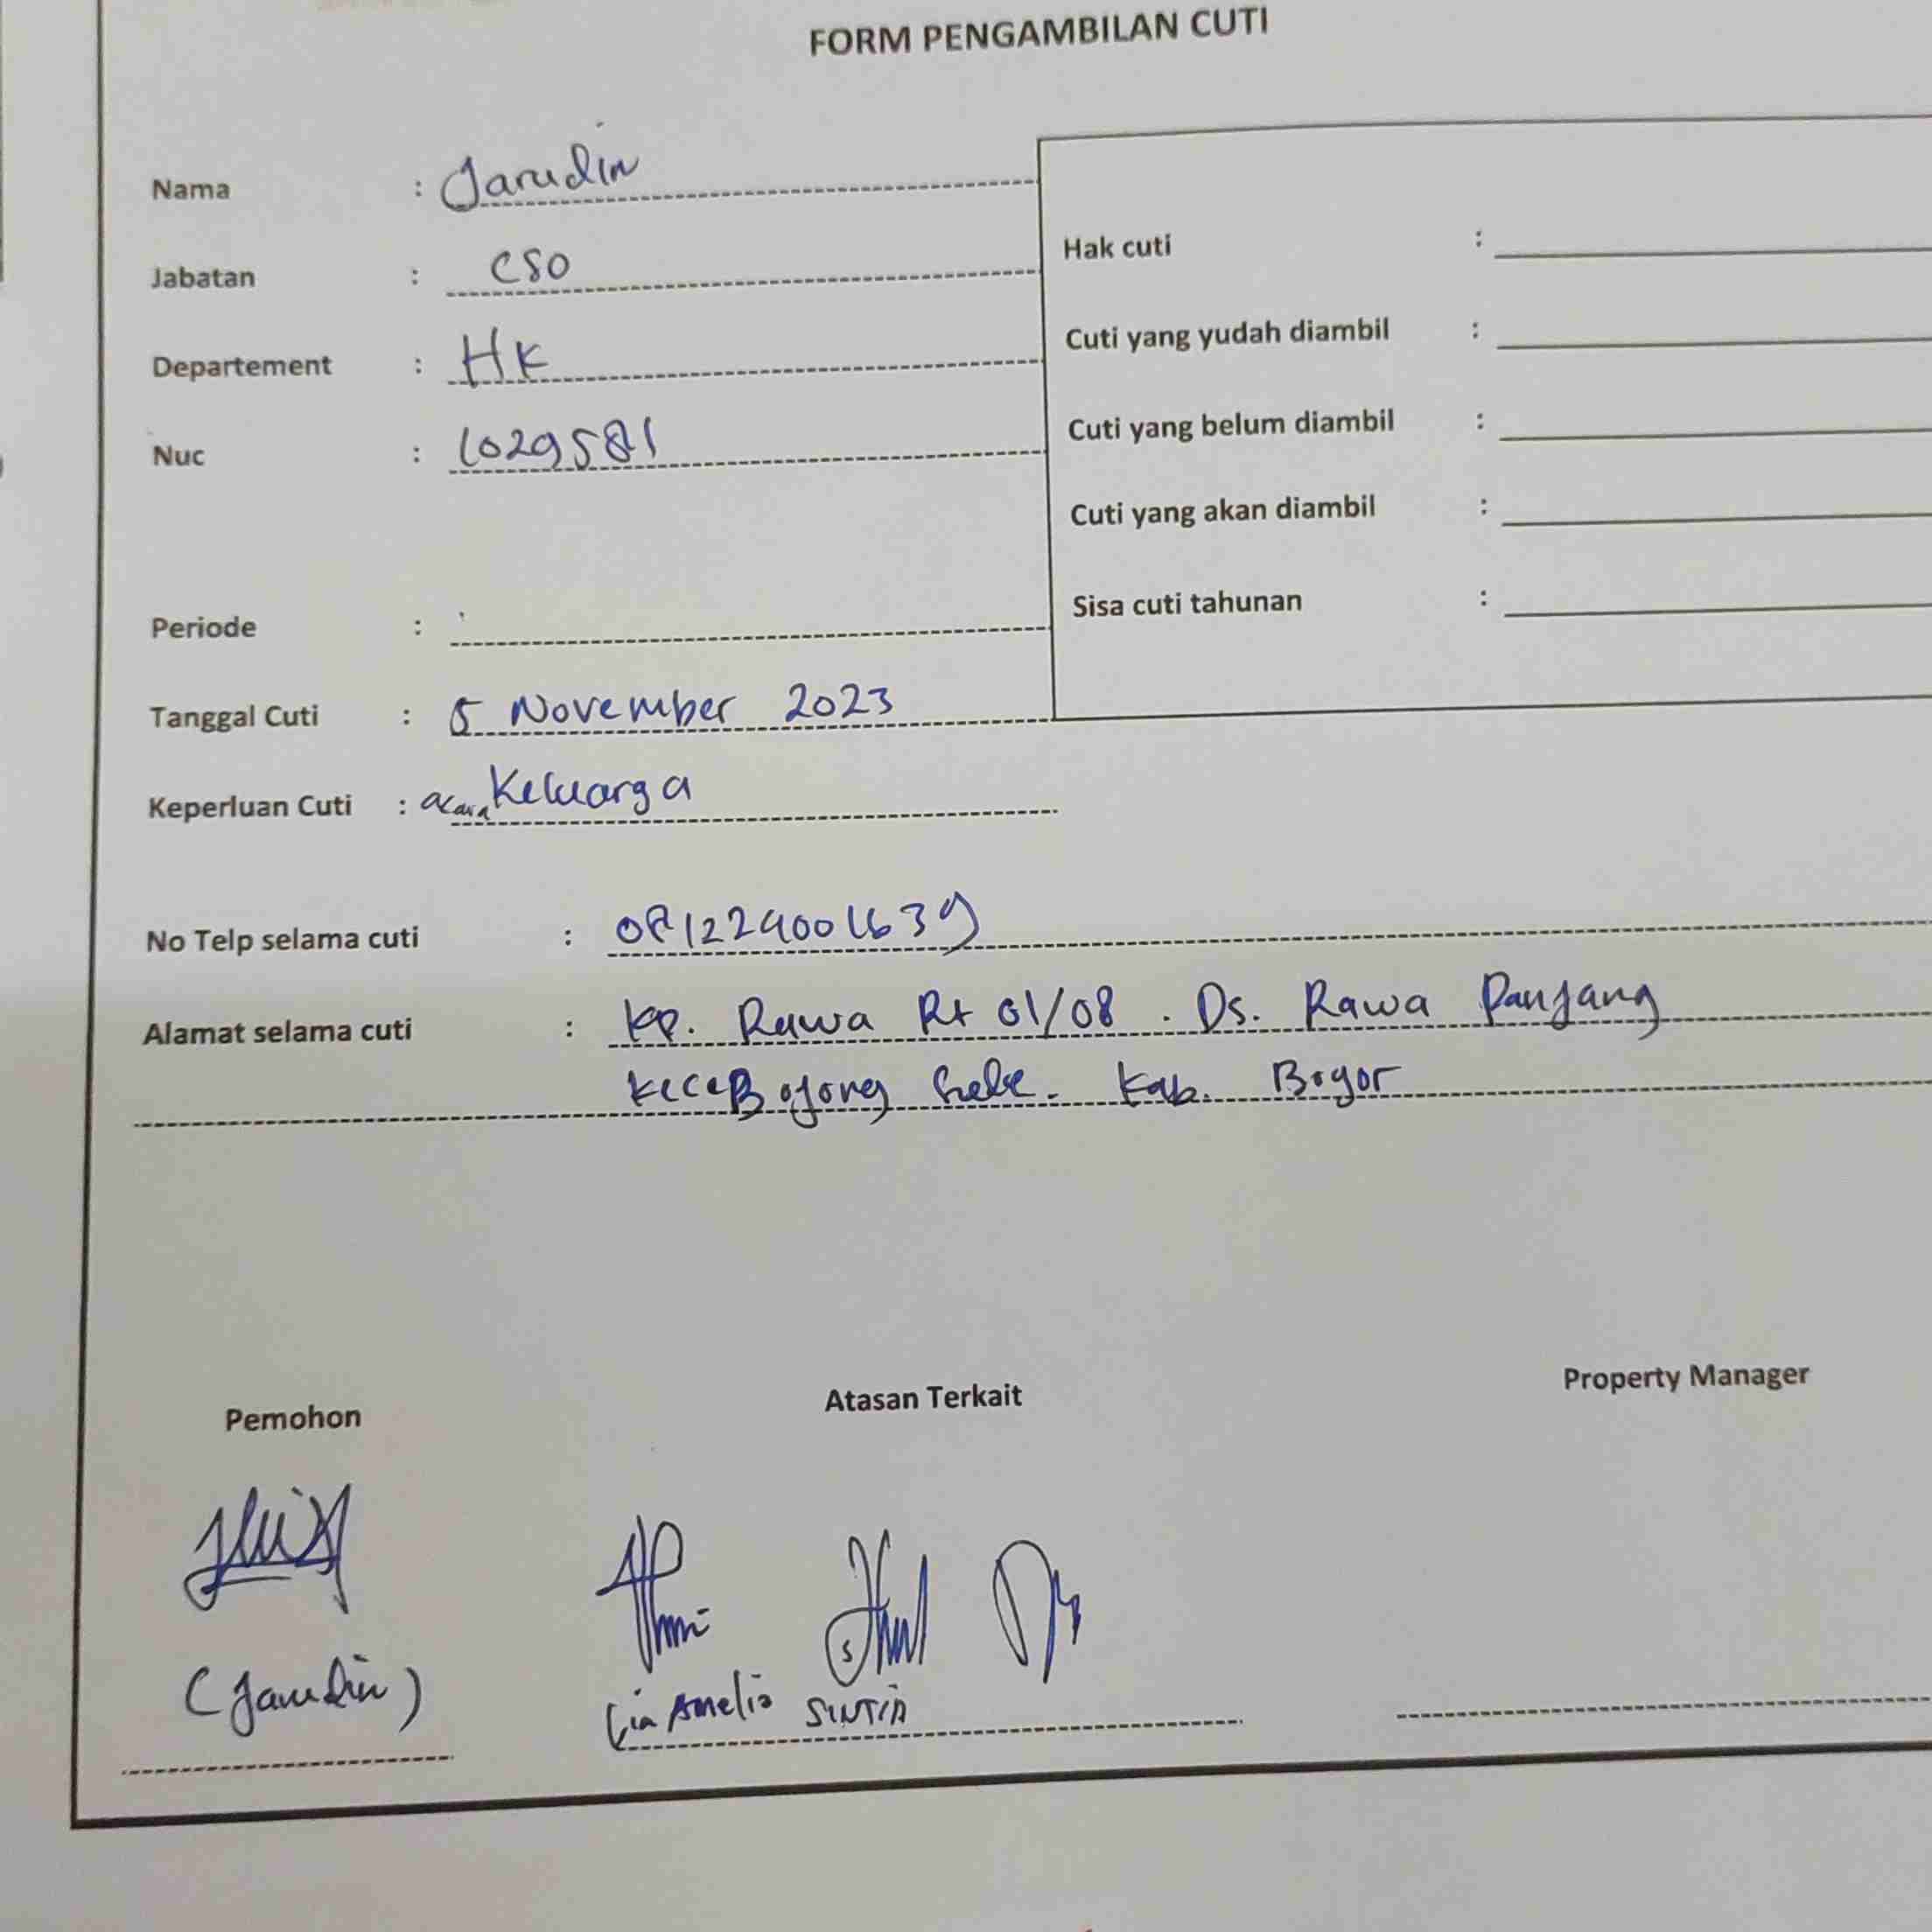 FORM PENGAMBILAN CUTI
Nama : Jarudin
Jabatan : CSO
Departement : HK
Nuc : 1029581
Hak cuti :
Cuti yang yudah diambil :
Cuti yang belum diambil :
Cuti yang akan diambil :
Sisa cuti tahunan :
Periode :
Tanggal Cuti : 5 November 2023
Keperluan Cuti : acara Keluarga
No Telp selama cuti : 081229001639
Alamat selama cuti : Kp. Rawa Rt 01/08 . Ds. Rawa Panjang
Kec. Bojong Gede. Kab. Bogor
Pemohon
Atasan Terkait
Property Manager
(Jarudin)
Lia Amelia SINTIA